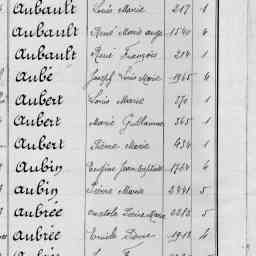 Aubault Louis Marie 217 1
Aubault René Marie ange 1540 4
Aubault René François 214 1
Aubé Joseph Louis Marie 1965 6
Aubert Louis Marie 270 1
Aubert Marie Guillaume 365 1
Aubert Pierre Marie 434 1
Aubin Eugène Jean baptiste 1764 4
Aubin Pierre Marie 2441 5
Aubrée Anatole Pierre Marie 2213 5
Aubrée Emile Pierre 1912 4